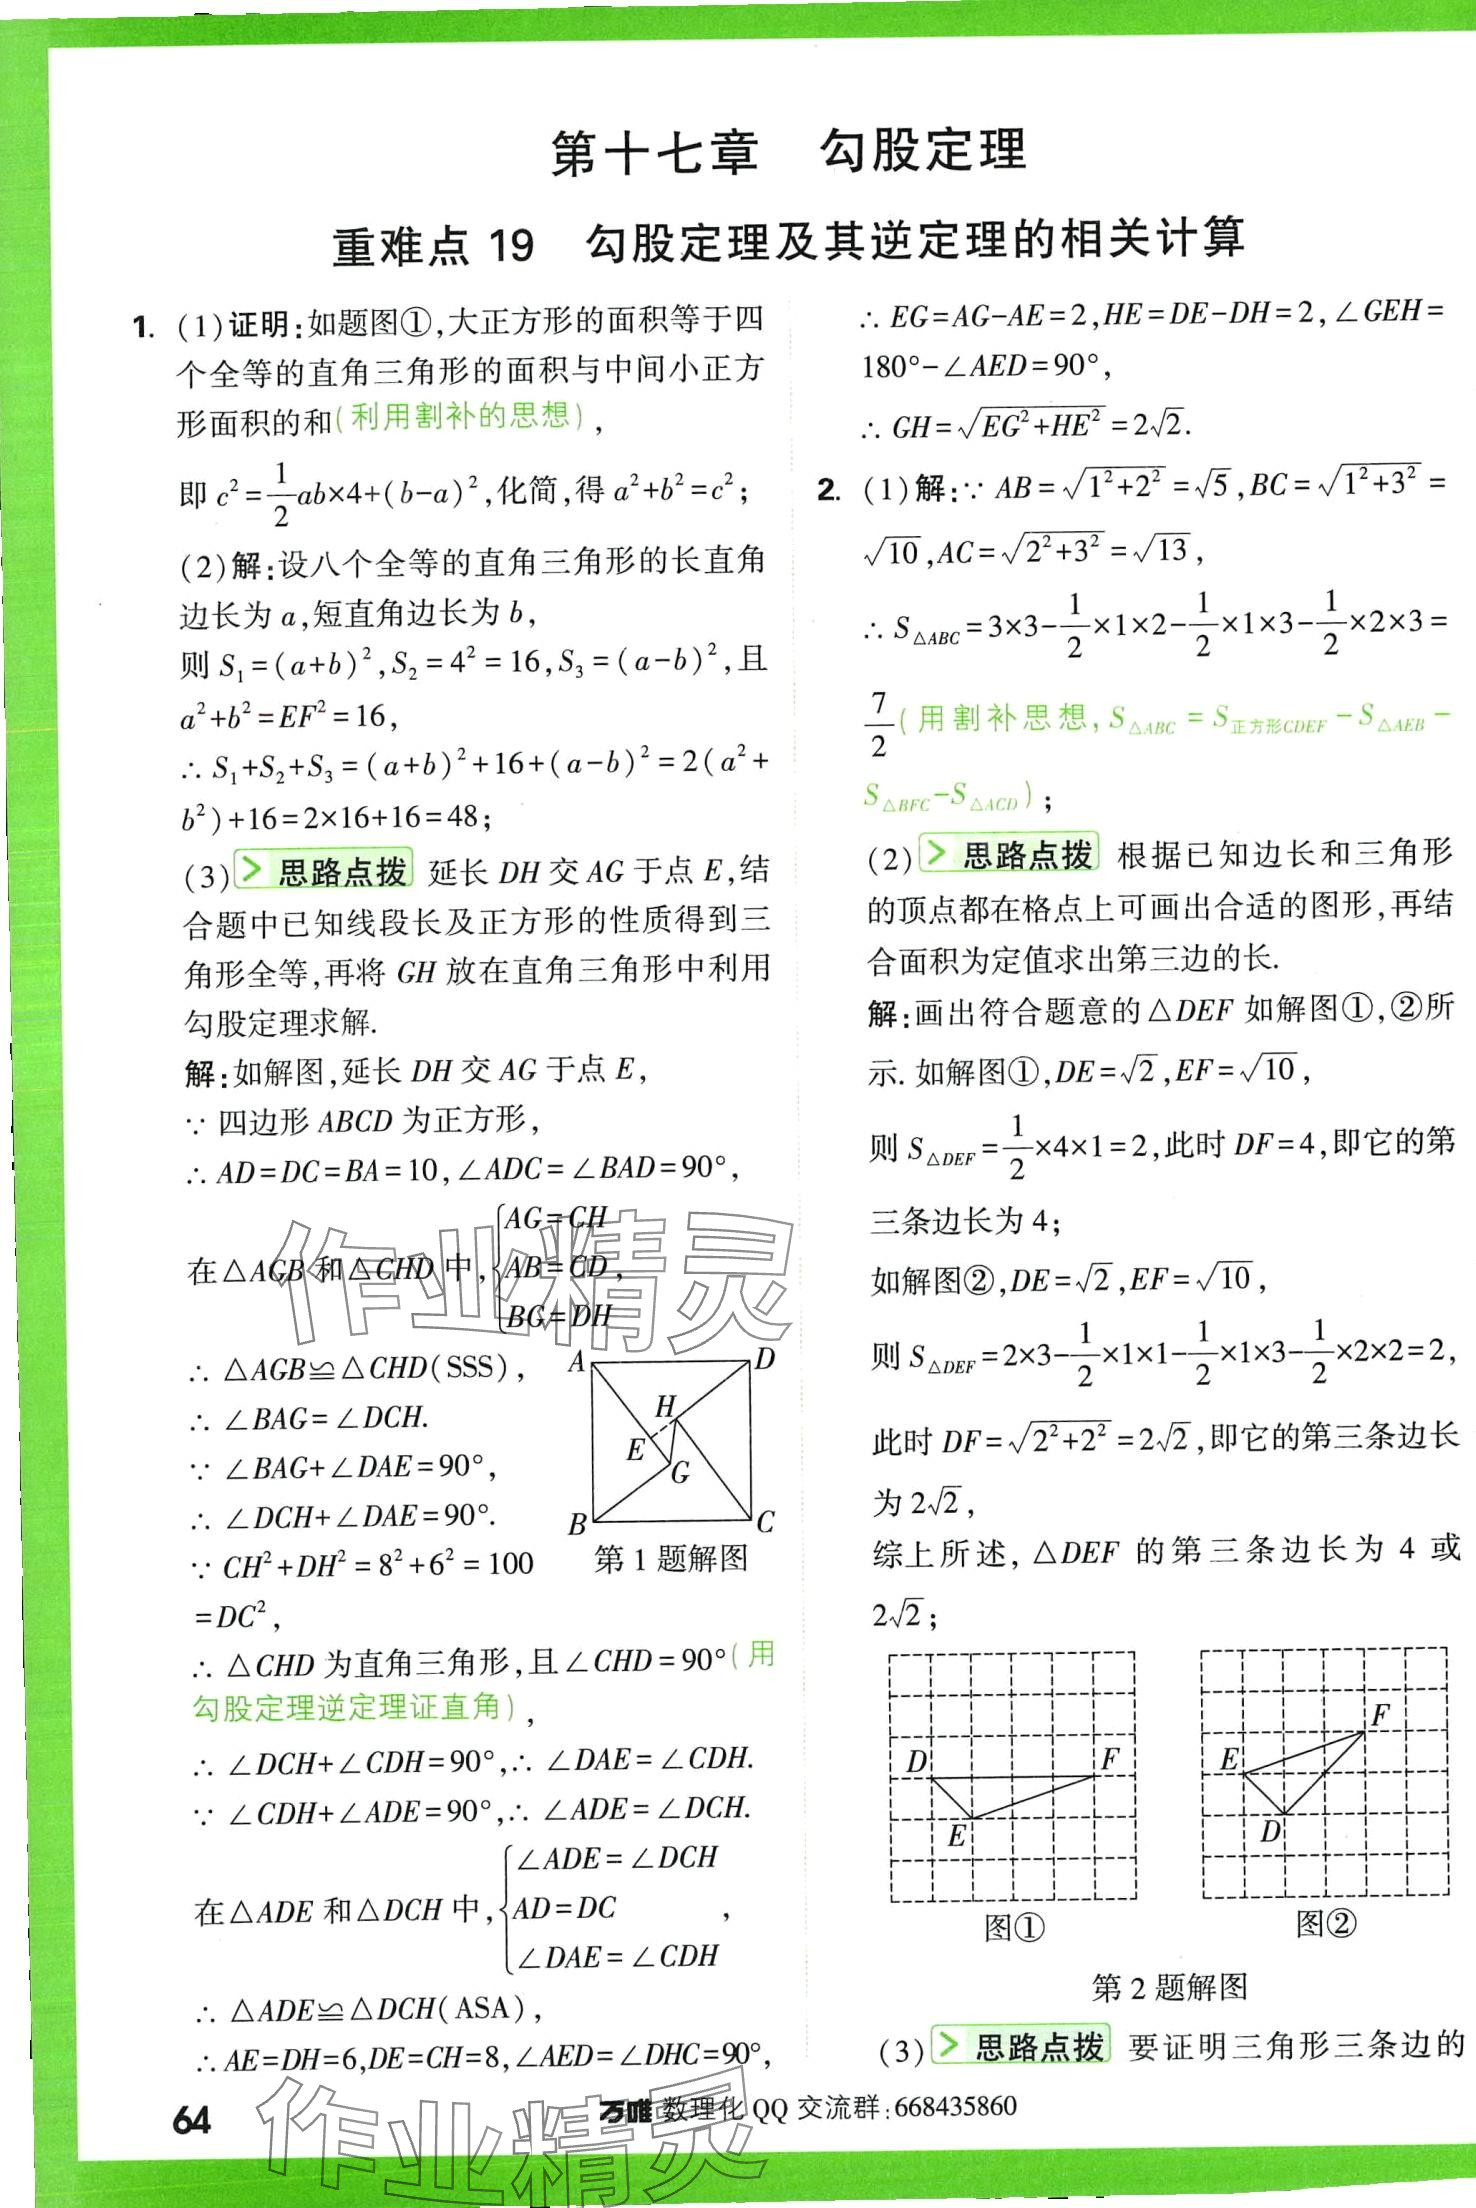 第十七章 勾股定理
重难点 19 勾股定理及其逆定理的相关计算
1. (1)证明:如题图①,大正方形的面积等于四
个全等的直角三角形的面积与中间小正方
形面积的和(利用割补的思想),
即 c²=1/2ab×4+(b-a)²,化简,得 a²+b²=c²;
(2)解:设八个全等的直角三角形的长直角
边长为 a,短直角边长为 b,
则 S₁=(a+b)²,S₂=4²=16,S₃=(a-b)²,且
a²+b²=EF²=16,
∴ S₁+S₂+S₃=(a+b)²+16+(a-b)²=2(a²+
b²)+16=2×16+16=48;
(3) > 思路点拨 延长 DH 交 AG 于点 E,结
合题中已知线段长及正方形的性质得到三
角形全等,再将 GH 放在直角三角形中利用
勾股定理求解.
解:如解图,延长 DH 交 AG 于点 E,
∵ 四边形 ABCD 为正方形,
∴ AD=DC=BA=10,∠ADC=∠BAD=90°,
在△AGB 和△CHD 中,{AG=CH
AB=CD,
BG=DH
∴ △AGB≌△CHD(SSS),
∴ ∠BAG=∠DCH.
∵ ∠BAG+∠DAE=90°,
∴ ∠DCH+∠DAE=90°.
∵ CH²+DH²=8²+6²=100
=DC²,
A D
H
E
G
B C
第 1 题解图
∴ △CHD 为直角三角形,且∠CHD=90°(用
勾股定理逆定理证直角),
∴ ∠DCH+∠CDH=90°,∴ ∠DAE=∠CDH.
∵ ∠CDH+∠ADE=90°,∴ ∠ADE=∠DCH.
在△ADE 和△DCH 中,{∠ADE=∠DCH
AD=DC,
∠DAE=∠CDH
∴ △ADE≌△DCH(ASA),
∴ AE=DH=6,DE=CH=8,∠AED=∠DHC=90°,
∴ EG=AG-AE=2,HE=DE-DH=2,∠GEH=
180°-∠AED=90°,
∴ GH=√(EG²+HE²)=2√2.
2. (1)解:∵ AB=√(1²+2²)=√5,BC=√(1²+3²)=
√10,AC=√(2²+3²)=√13,
∴ S△ABC=3×3-1/2×1×2-1/2×1×3-1/2×2×3=
7/2(用割补思想,S△ABC=S正方形CDEF-S△AEB-
S△BFC-S△ACD);
(2) > 思路点拨 根据已知边长和三角形
的顶点都在格点上可画出合适的图形,再结
合面积为定值求出第三边的长.
解:画出符合题意的△DEF 如解图①,②所
示. 如解图①,DE=√2,EF=√10,
则 S△DEF=1/2×4×1=2,此时 DF=4,即它的第
三条边长为 4;
如解图②,DE=√2,EF=√10,
则 S△DEF=2×3-1/2×1×1-1/2×1×3-1/2×2×2=2,
此时 DF=√(2²+2²)=2√2,即它的第三条边长
为 2√2,
综上所述,△DEF 的第三条边长为 4 或
2√2;
D F
E
图①
F
E
D
图②
第 2 题解图
(3) > 思路点拨 要证明三角形三条边的
64
万唯 数理化 QQ 交流群:668435860
作业精灵
作业精灵